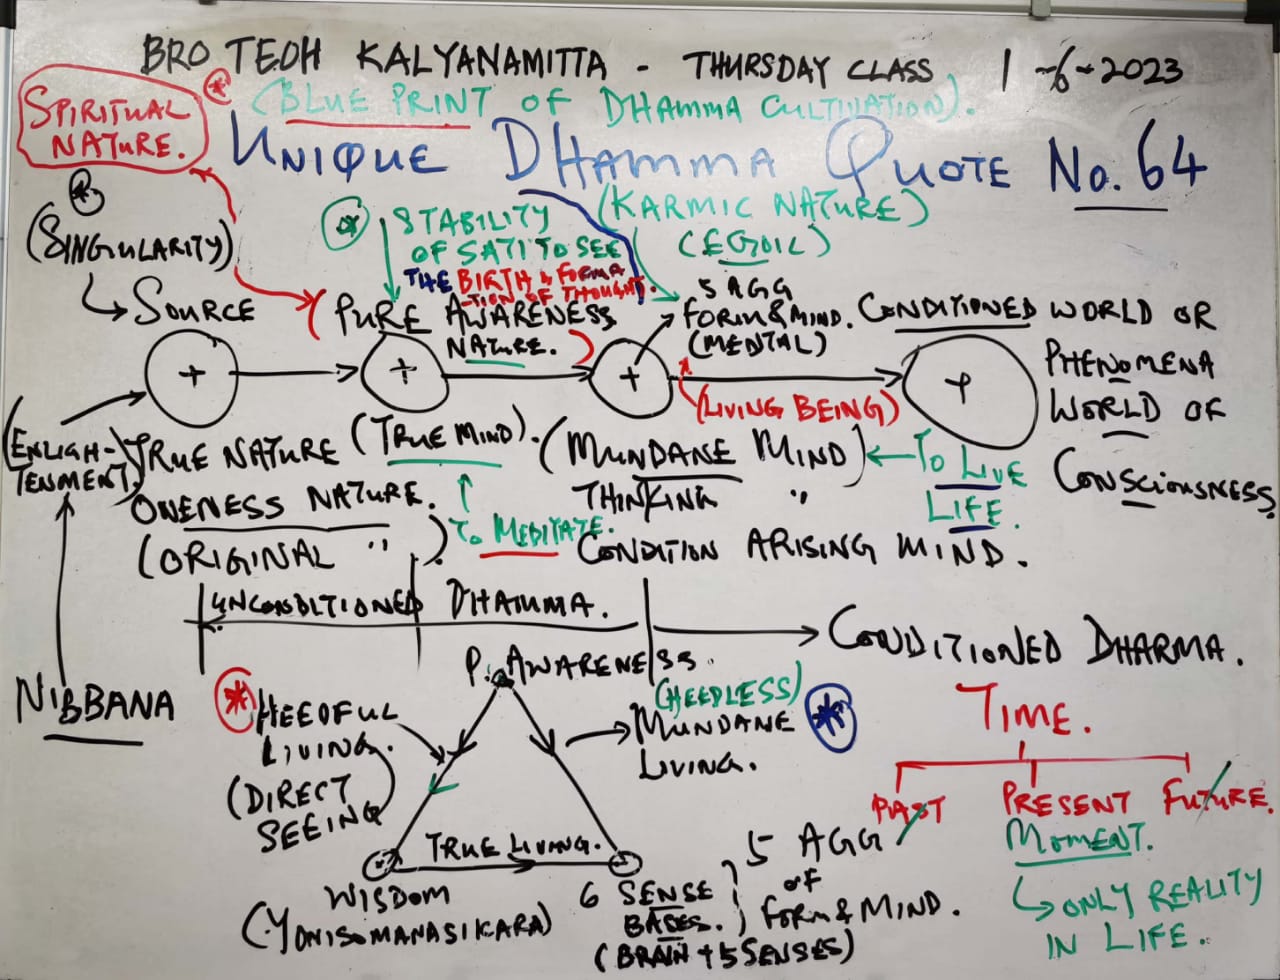 BRO TEOH KALYANAMITTA - THURSDAY CLASS 1-6-2023
(BLUE PRINT OF DHAMMA CULTIVATION).
SPIRITUAL
NATURE.
UNIQUE DHAMMA QUOTE No. 64
(SINGULARITY)
SOURCE
STABILITY
OF SATI TO SEE
THE BIRTH & FORMA
-TION OF THOUGHT.
(KARMIC NATURE)
(EGOIC)
(PURE AWARENESS
NATURE.)
5 AGG
FORM & MIND.
(MENTAL)
CONDITIONED WORLD OR
PHENOMENA
WORLD OF
CONSCIOUSNESS.
(LIVING BEING)
(ENLIGH-
TENMENT)
TRUE NATURE
ONENESS NATURE.
(ORIGINAL ")
(TRUE MIND).
TO MEDITATE.
(MUNDANE MIND)
THINKING "
CONDITION ARISING MIND.
TO LIVE
LIFE.
UNCONDITIONED DHAMMA.
CONDITIONED DHARMA.
NIBBANA
P. AWARENESS.
HEEDFUL
LIVING.
(DIRECT
SEEING)
(HEEDLESS)
MUNDANE
LIVING.
TRUE LIVING.
WISDOM
(YONISOMANASIKARA)
6 SENSE
BASES.
(BRAIN + 5 SENSES)
5 AGG
OF
FORM & MIND.
TIME.
PAST PRESENT FUTURE.
MOMENT.
ONLY REALITY
IN LIFE.